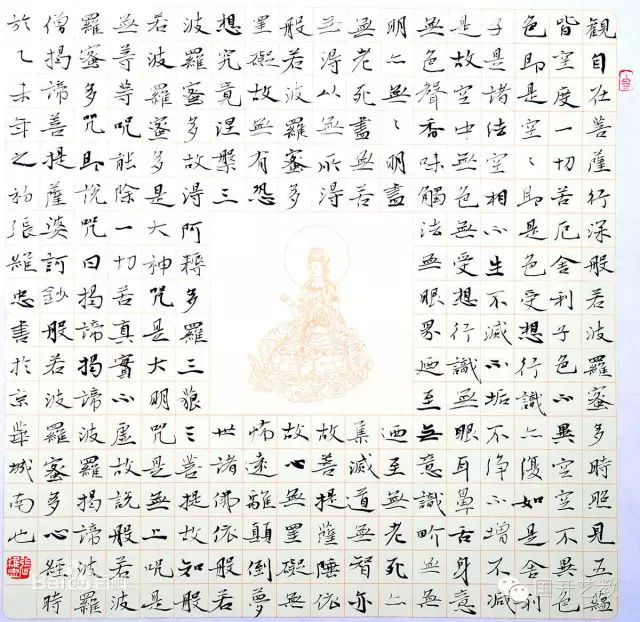 観自在菩薩行深般若波羅蜜多時照見五蘊
皆空度一切苦厄舍利子色不異空空不異色
色即是空〻即是色受想行識亦復如是舍利
子是諸法空相不生不滅不垢不淨不增不減
是故空中無色無受想行識無眼耳鼻舌身意
無色聲香味觸法無眼界廼至無意識界無無
明亦無〻明盡廼至無老死亦
無老死盡無苦集滅道無智亦
無得以無所得故菩提薩埵依
般若波羅蜜多故心無罣礙無
罣礙故無有恐怖遠離顛倒夢
想究竟涅槃三世諸佛依般若
波羅蜜多故得阿耨多羅三藐三菩提故知般
若波羅蜜多是大神咒是大明咒是無上咒是
無等等呪能除一切苦真實不虛故說般若波
羅蜜多咒即說咒曰揭諦揭諦波羅揭諦波羅
僧揭諦菩提薩婆訶鈔般若波羅蜜多心經時
於乙未年之初張維忠書於京華城南也
国开艺教